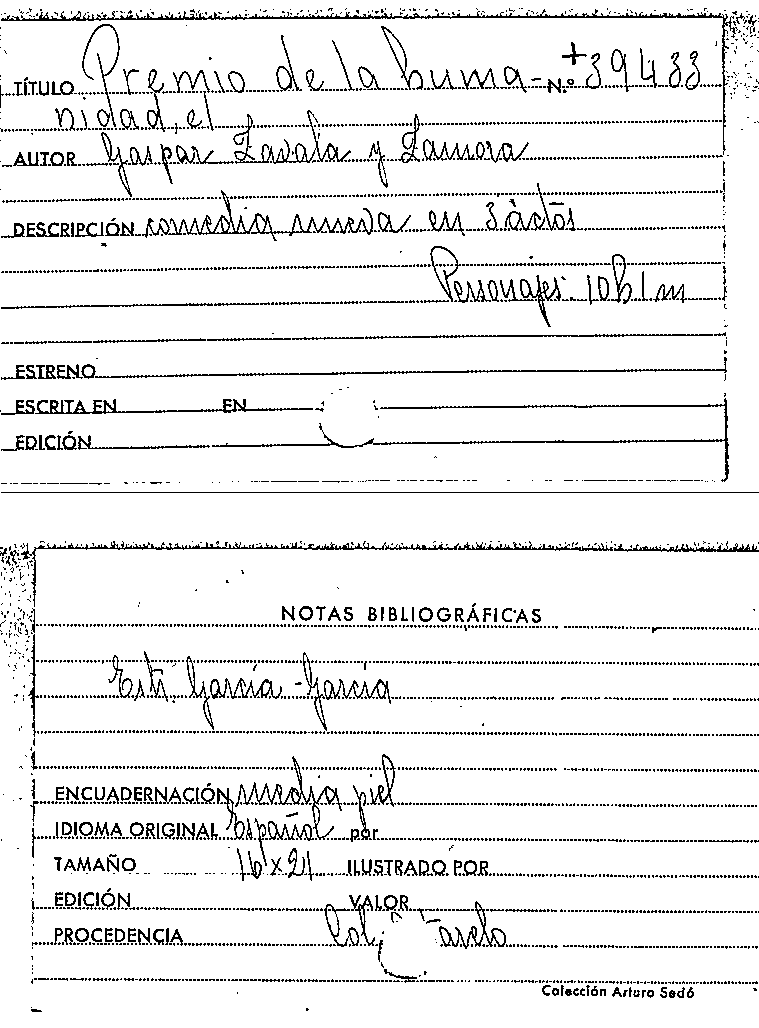 TÍTULO Premio de la huma- N.º +39433
nidad, el
AUTOR Gaspar Zavala y Zamora
DESCRIPCIÓN comedia nueva en 3 actos
Personajes: 10h 1m
ESTRENO
ESCRITA EN EN
EDICIÓN
NOTAS BIBLIOGRÁFICAS
García-García
ENCUADERNACIÓN media piel
IDIOMA ORIGINAL Español por
TAMAÑO 16x21 ILUSTRADO POR
EDICIÓN VALOR
PROCEDENCIA Col.
Colección Arturo Sedó